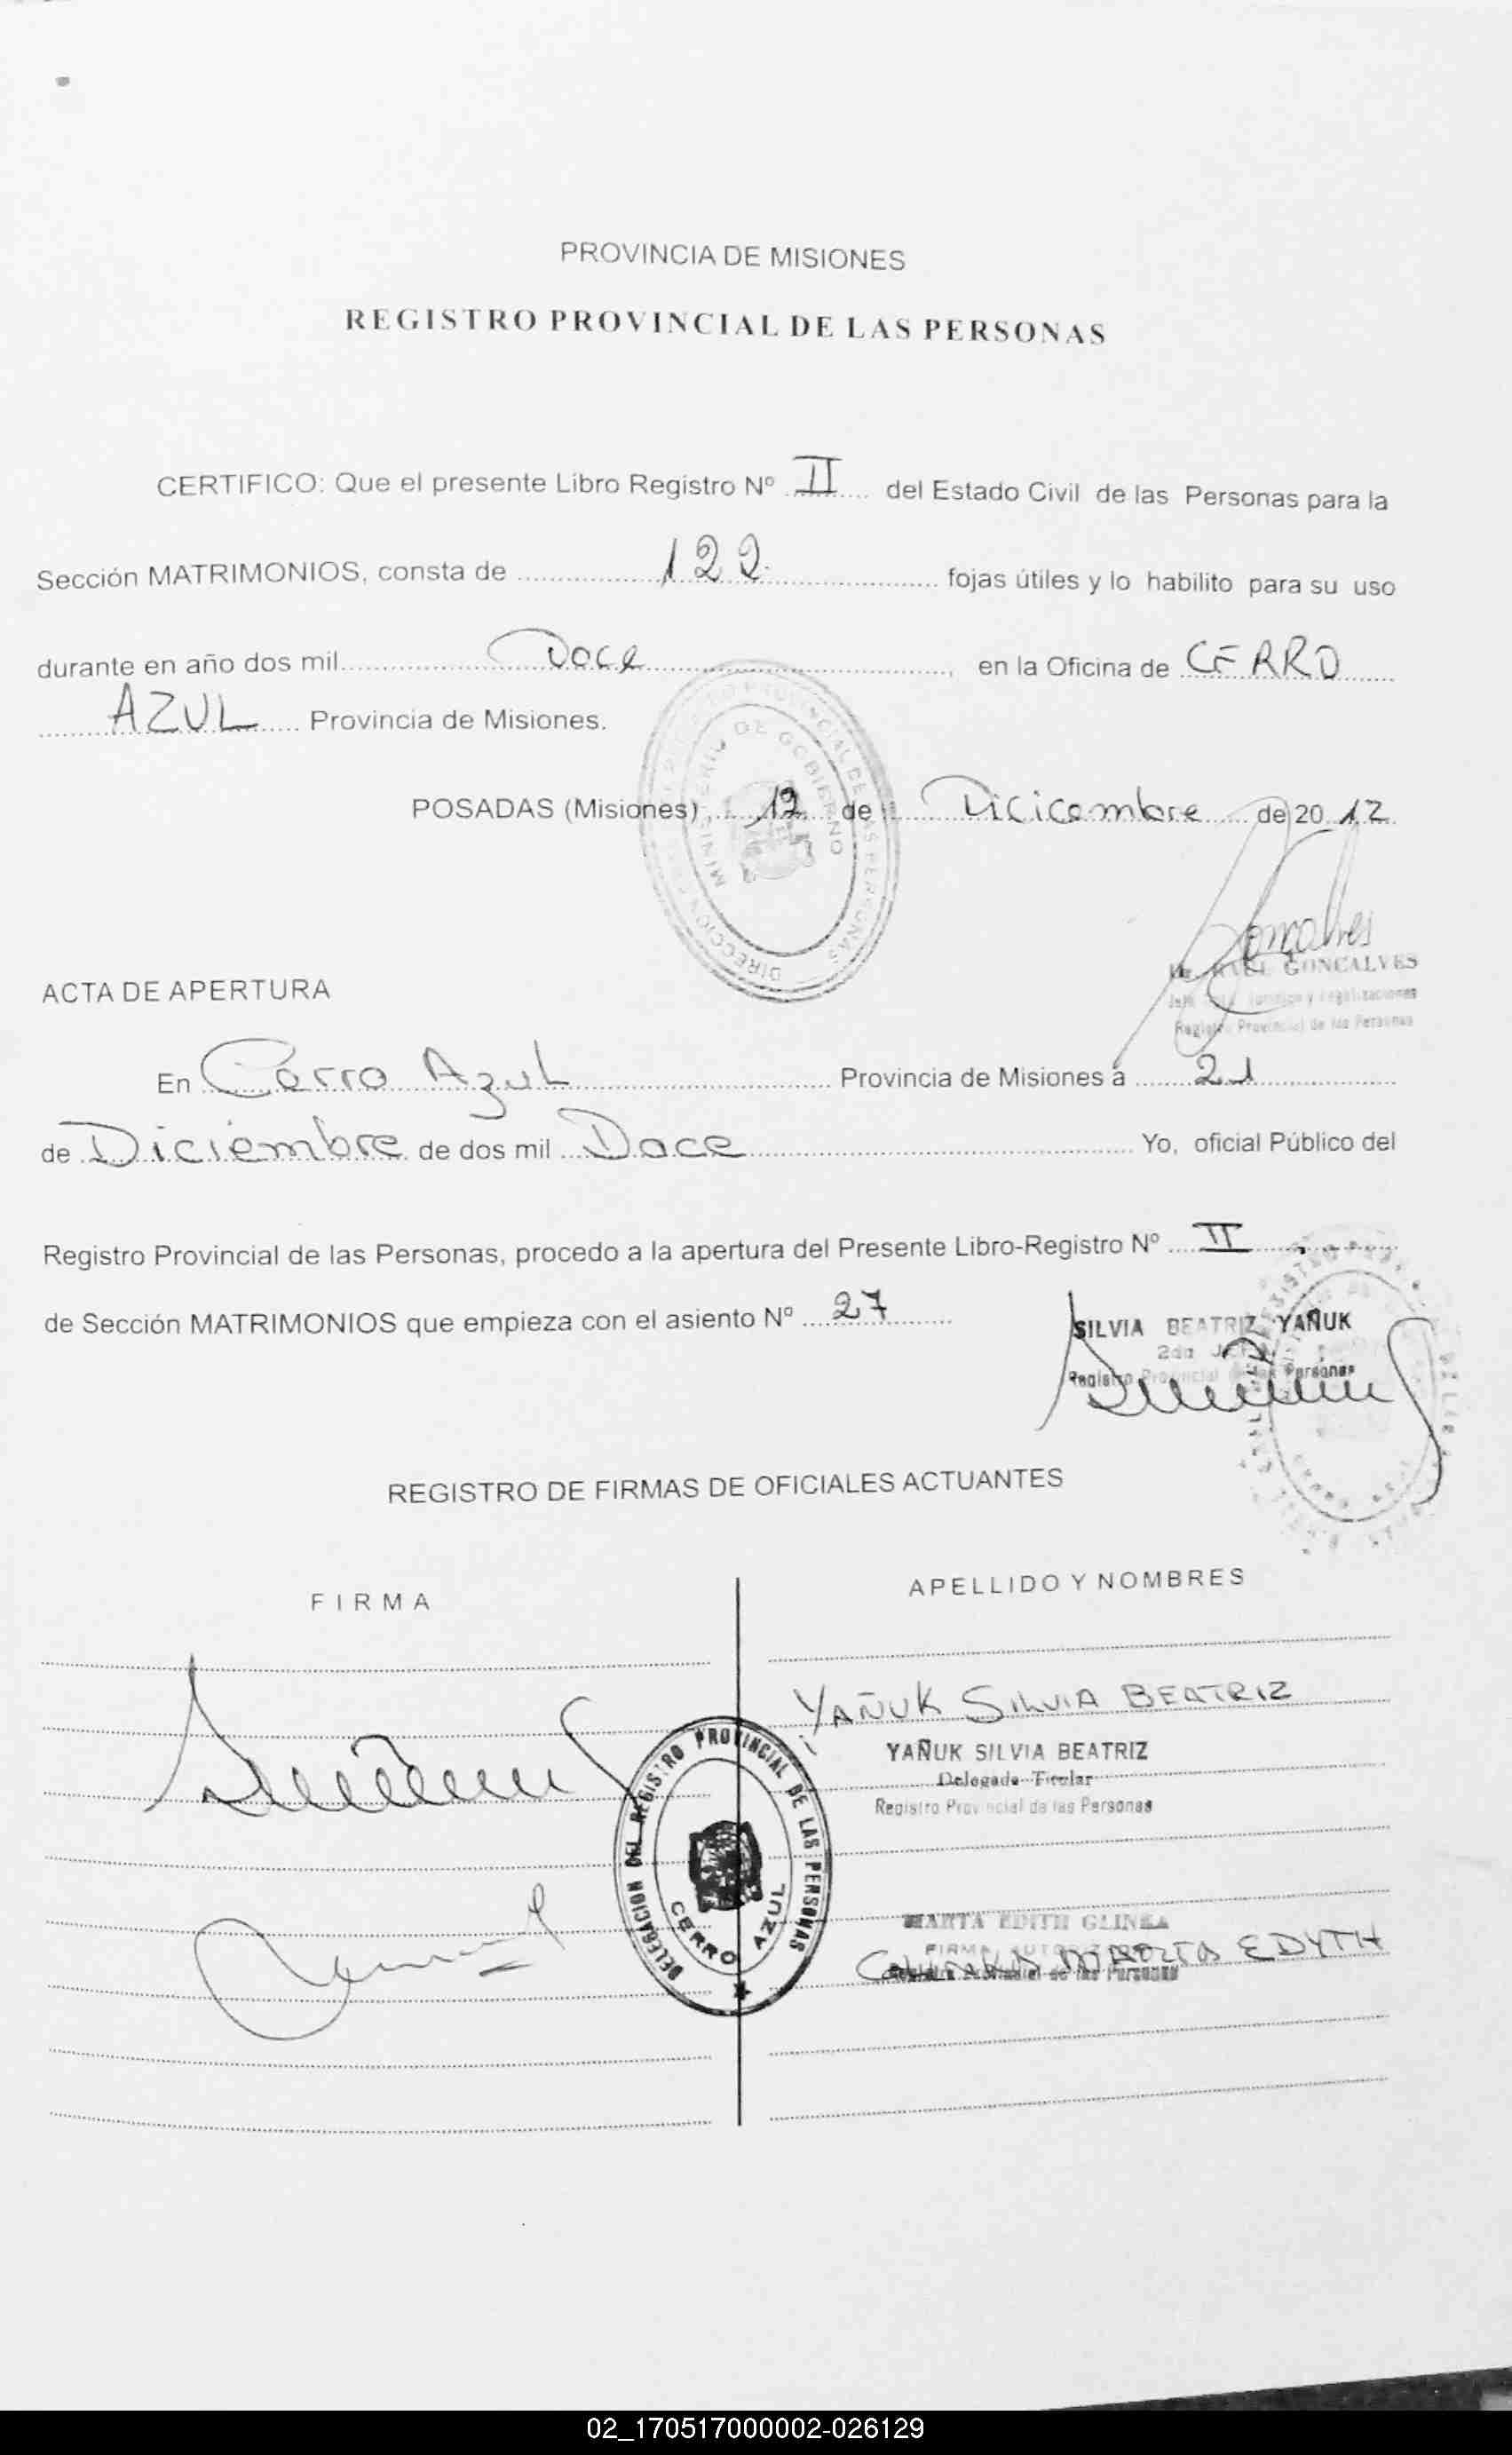 PROVINCIA DE MISIONES
REGISTRO PROVINCIAL DE LAS PERSONAS
CERTIFICO: Que el presente Libro Registro Nº II del Estado Civil de las Personas para la
Sección MATRIMONIOS, consta de 122 fojas útiles y lo habilito para su uso
durante en año dos mil Doce, en la Oficina de CERRO
AZUL Provincia de Misiones.
POSADAS (Misiones), 12 de Diciembre de 2012
DIRECCION PROVINCIAL DE LAS PERSONAS
MINISTERIO DE GOBIERNO
Goncalves
RAUL GONCALVES
Registro Provincial de las Personas
ACTA DE APERTURA
En Cerro Azul Provincia de Misiones a 21
de Diciembre de dos mil Doce Yo, oficial Público del
Registro Provincial de las Personas, procedo a la apertura del Presente Libro-Registro Nº II
de Sección MATRIMONIOS que empieza con el asiento Nº 27
SILVIA BEATRIZ YAÑUK
2da JEFA
Registro Provincial de las Personas
REGISTRO DE FIRMAS DE OFICIALES ACTUANTES
FIRMA APELLIDO Y NOMBRES
YAÑUK SILVIA BEATRIZ
YAÑUK SILVIA BEATRIZ
Delegada Titular
Registro Provincial de las Personas
DELEGACION DEL REGISTRO PROVINCIAL DE LAS PERSONAS
CERRO AZUL
MARTA EDITH GLINKA
FIRMA AUTORIZADA
MARTA EDYTH
Provincial de las Personas
02_170517000002-026129